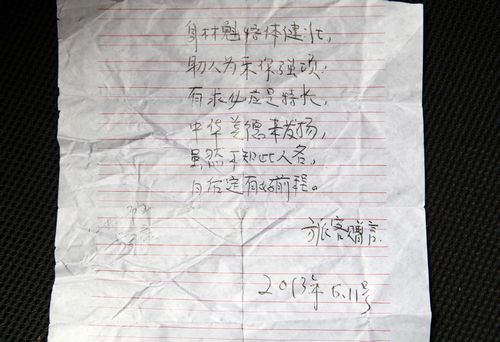 身材魁梧体健壮,
助人为乐你强项;
有求必应是特长,
中华美德来发扬,
虽然不知此人名,
日后定有好前程。
旅客赠言.
2013年5.11号